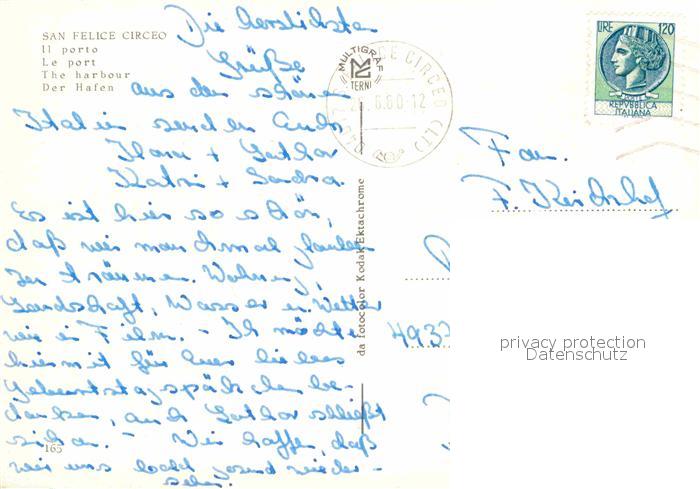 SAN FELICE CIRCEO
Il porto
Le port
The harbour
Der Hafen
Die herzlichsten
Grüße
aus dem schönen
Italien senden Euch
+ Lothar
Katrin + Sandra.
Es ist hier so schön,
daß wir manchmal glauben
zu träumen. Wohnung,
Landschaft, Wasser u. Wetter
wie i. Film. - Ich möchte
hiermit für Euer liebes
Geburtstagspäckchen be-
danken, auch Lothar schließt
sich an. - Wir hoffen, daß
wir uns bald gesund wieder-
sehen.
165
da fotocolor Kodak Ektachrome
MULTIGRAF
TERNI
CIRCEO (LT)
.6.80-12
LIRE 120
POSTE
REPVBBLICA
ITALIANA
Fam.
F. Kirchhof
privacy protection
Datenschutz